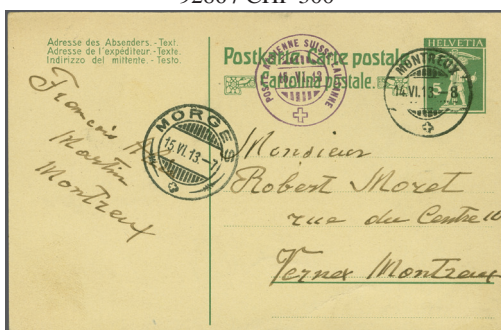 92607 CHF 300
Adresse des Absenders. - Text.
Adresse de l'expéditeur. - Texte.
Indirizzo del mittente. - Testo.
Postkarte. Carte postale.
Cartolina postale.
HELVETIA
5
POSTE AÉRIENNE SUISSE LAUSANNE
MONTREUX
14.VI.13 - 8
MORGES
15.VI.13.-7
François
Martin
Montreux
Monsieur
Robert Moret
rue du Centre
Vernex Montreux